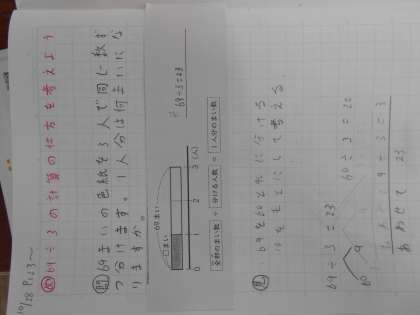 10/28 P.123~
め 69÷3の計算の仕方を考えよう
問 69まいの色紙を3人で同じ数ず
つ分けます。1人分は何まいにな
りますか。
69まい
□まい
0 1 2 3(人)
全部のまい数 ÷ 分ける人数 = 1人分のまい数
式 69÷3=23
69を60と9に分ける
10をもとにして考える
69÷3=23
60 9
60÷3=20
9÷3=3
あわせて 23